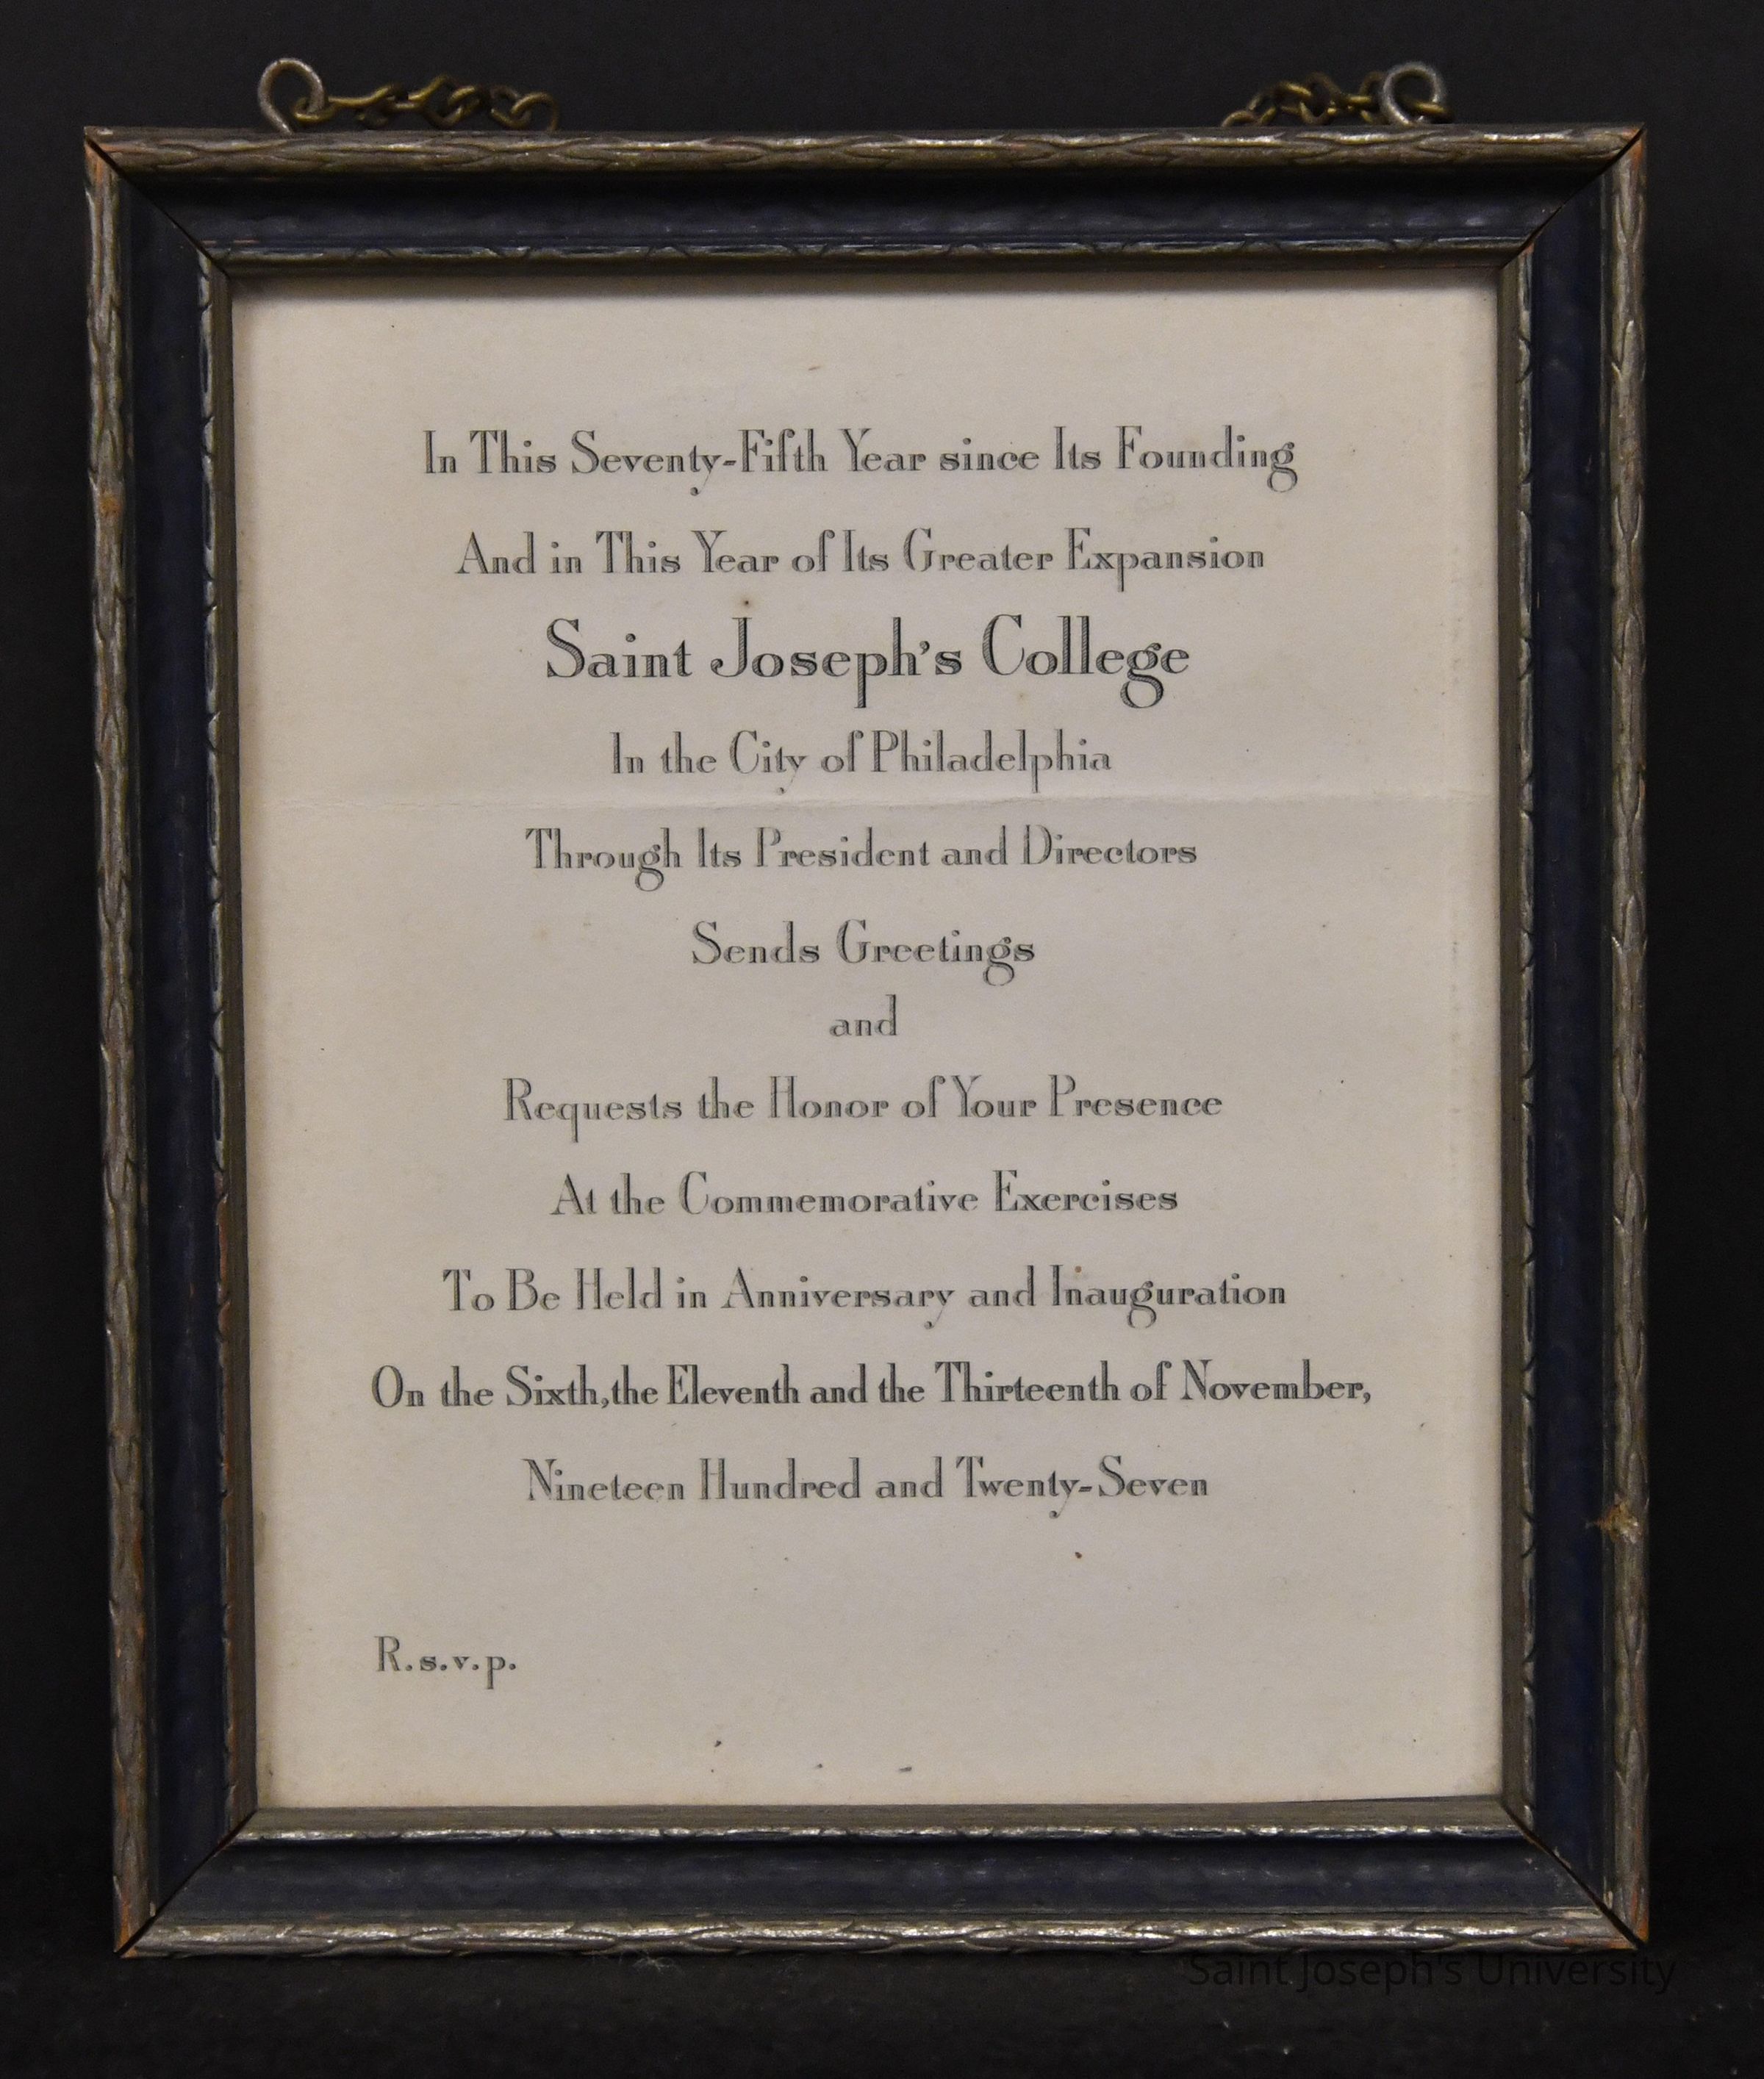 In This Seventy-Fifth Year since Its Founding
And in This Year of Its Greater Expansion
Saint Joseph's College
In the City of Philadelphia
Through Its President and Directors
Sends Greetings
and
Requests the Honor of Your Presence
At the Commemorative Exercises
To Be Held in Anniversary and Inauguration
On the Sixth, the Eleventh and the Thirteenth of November,
Nineteen Hundred and Twenty-Seven
R.s.v.p.
Saint Joseph's University